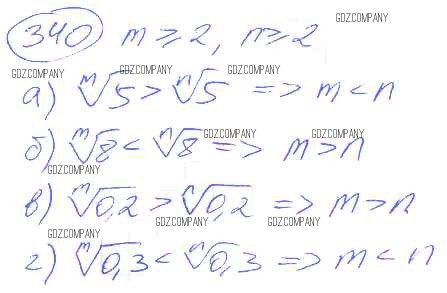 340 m ≥ 2, n ≥ 2 GDZ.COMPANY
GDZ.COMPANY GDZ.COMPANY GDZ.COMPANY
а) ᵐ√5 > ⁿ√5 => m < n
GDZ.COMPANY GDZ.COMPANY
б) ᵐ√8 < ⁿ√8 => m > n
GDZ.COMPANY
в) ᵐ√0,2 > ⁿ√0,2 => m > n
GDZ.COMPANY GDZ.COMPANY GDZ.COMPANY
г) ᵐ√0,3 < ⁿ√0,3 => m < n